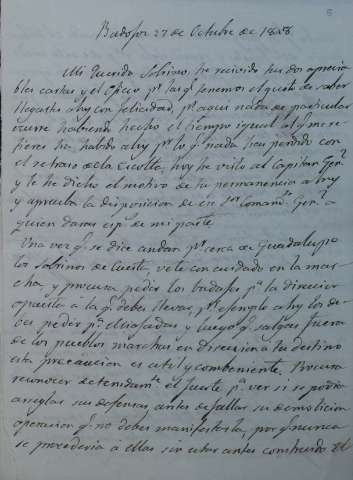 8
Badajoz 27 de Octubre de 1838
Mi querido Sobrino, he recivido tus dos aprecia
bles cartas y el oficio p.r las q.e tenemos el gusto de saver
llegastes ahy con felicidad, p.r aqui nada de particular
ocurre habiendo hecho el tiempo igual al q.e me re
fieres ha habido ahy p.r lo q.e nada has perdido con
el retraso de la Escolta, hoy he visto al Capitan Gen.l
y le he dicho el motivo de tu permanencia ahy
y aprueba la disposicion de ese S.or Comand.te Gen.l a
quien daras esp.s de mi parte
Una vez q.e se dice andan p.r cerca de Guadalupe
los sobrinos de Cuesta, vete con cuidado en la mar
cha, y procura pedir los bagajes p.a la direccion
opuesta á la q.e debes llevar, p.r ejemplo ahy los de
ves pedir p.a Miajadas y luego q.e salgas fuera
de los pueblos marchas en direccion á tu destino
esta precaucion es util y combeniente. Procura
reconocer detenidam.te el fuerte p.a ver si se podrian
arreglar sus defensas, antes de fallar su demolicion
operacion q.e no debes manifestarla, por q.e nunca
se procederia á ellas sin estar antes construido el